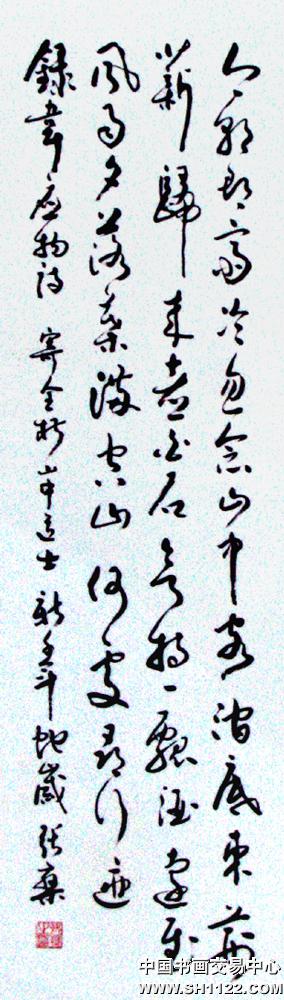 今朝郡齋冷忽念山中客澗底束荊
薪歸來煮白石欲持一瓢酒遠慰
風雨夕落葉滿空山何處尋行迹
錄韋應物詩 寄全椒山中道士 蛇歲 張
中国书画交易中心
www.SH1122.com